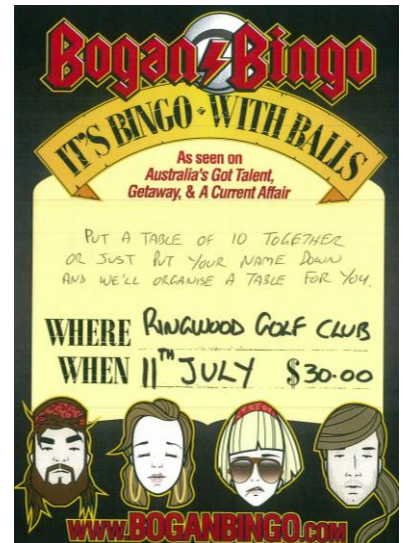 Bogan Bingo
IT'S BINGO WITH BALLS
As seen on
Australia's Got Talent,
Getaway, & A Current Affair
PUT A TABLE OF 10 TOGETHER
OR JUST PUT YOUR NAME DOWN
AND WE'LL ORGANISE A TABLE FOR YOU.
WHERE RINGWOOD GOLF CLUB
WHEN 11TH JULY $30.00
WWW.BOGANBINGO.COM